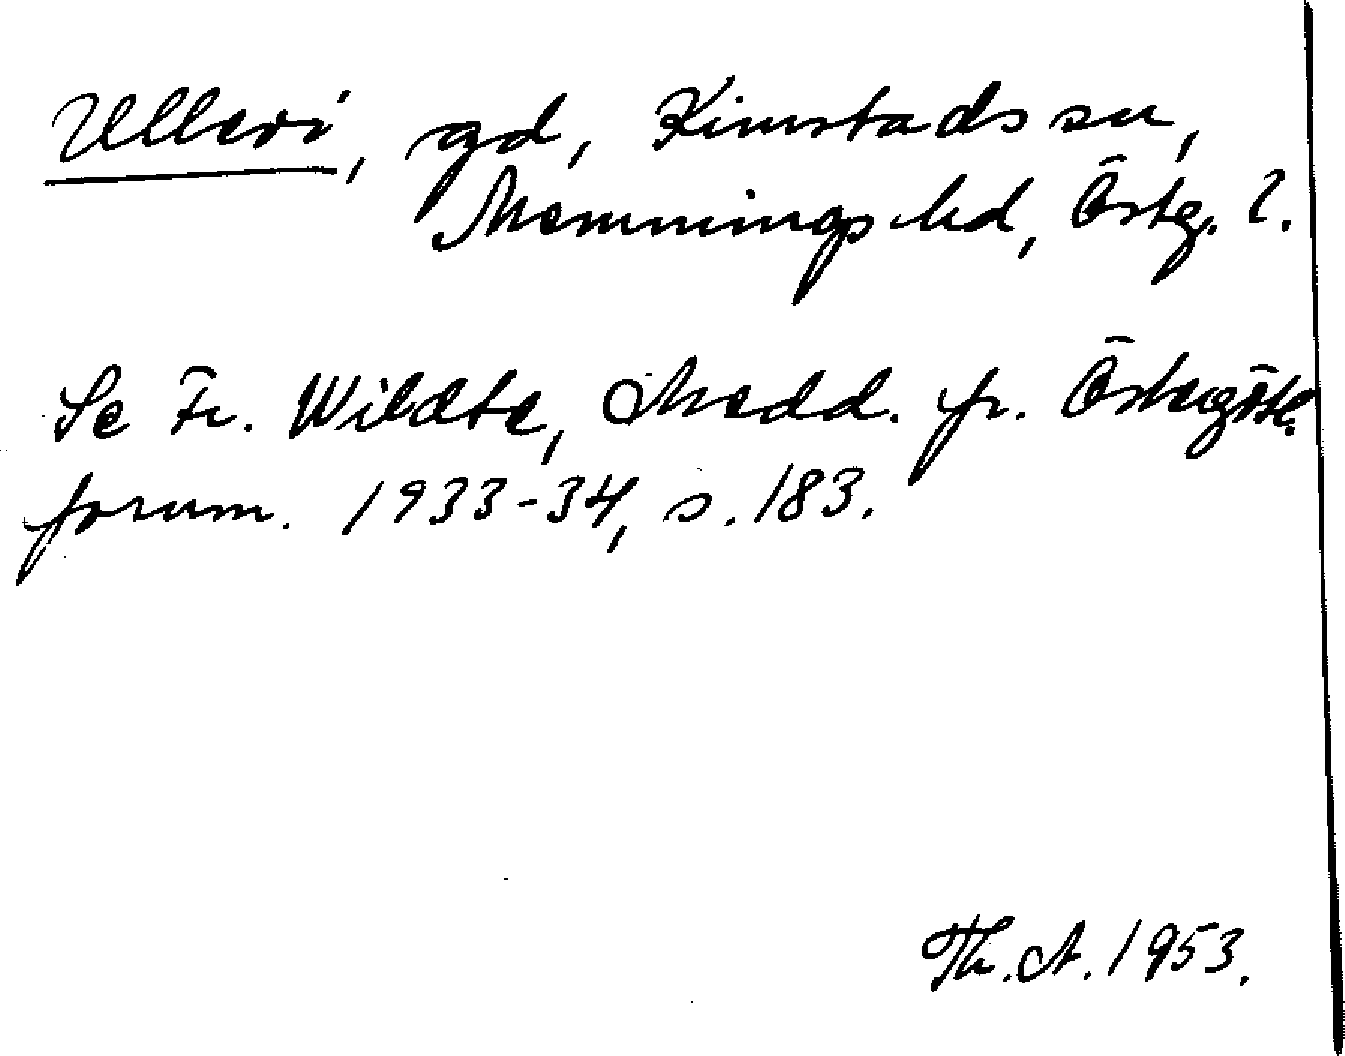 Ullevi, gd, Kimstads sn,
Memmings hd, Östg. l.
Se Fr. Wildte, Medd. fr. Östergötl.
fornm. 1933-34, s. 183.
Th. A. 1953.